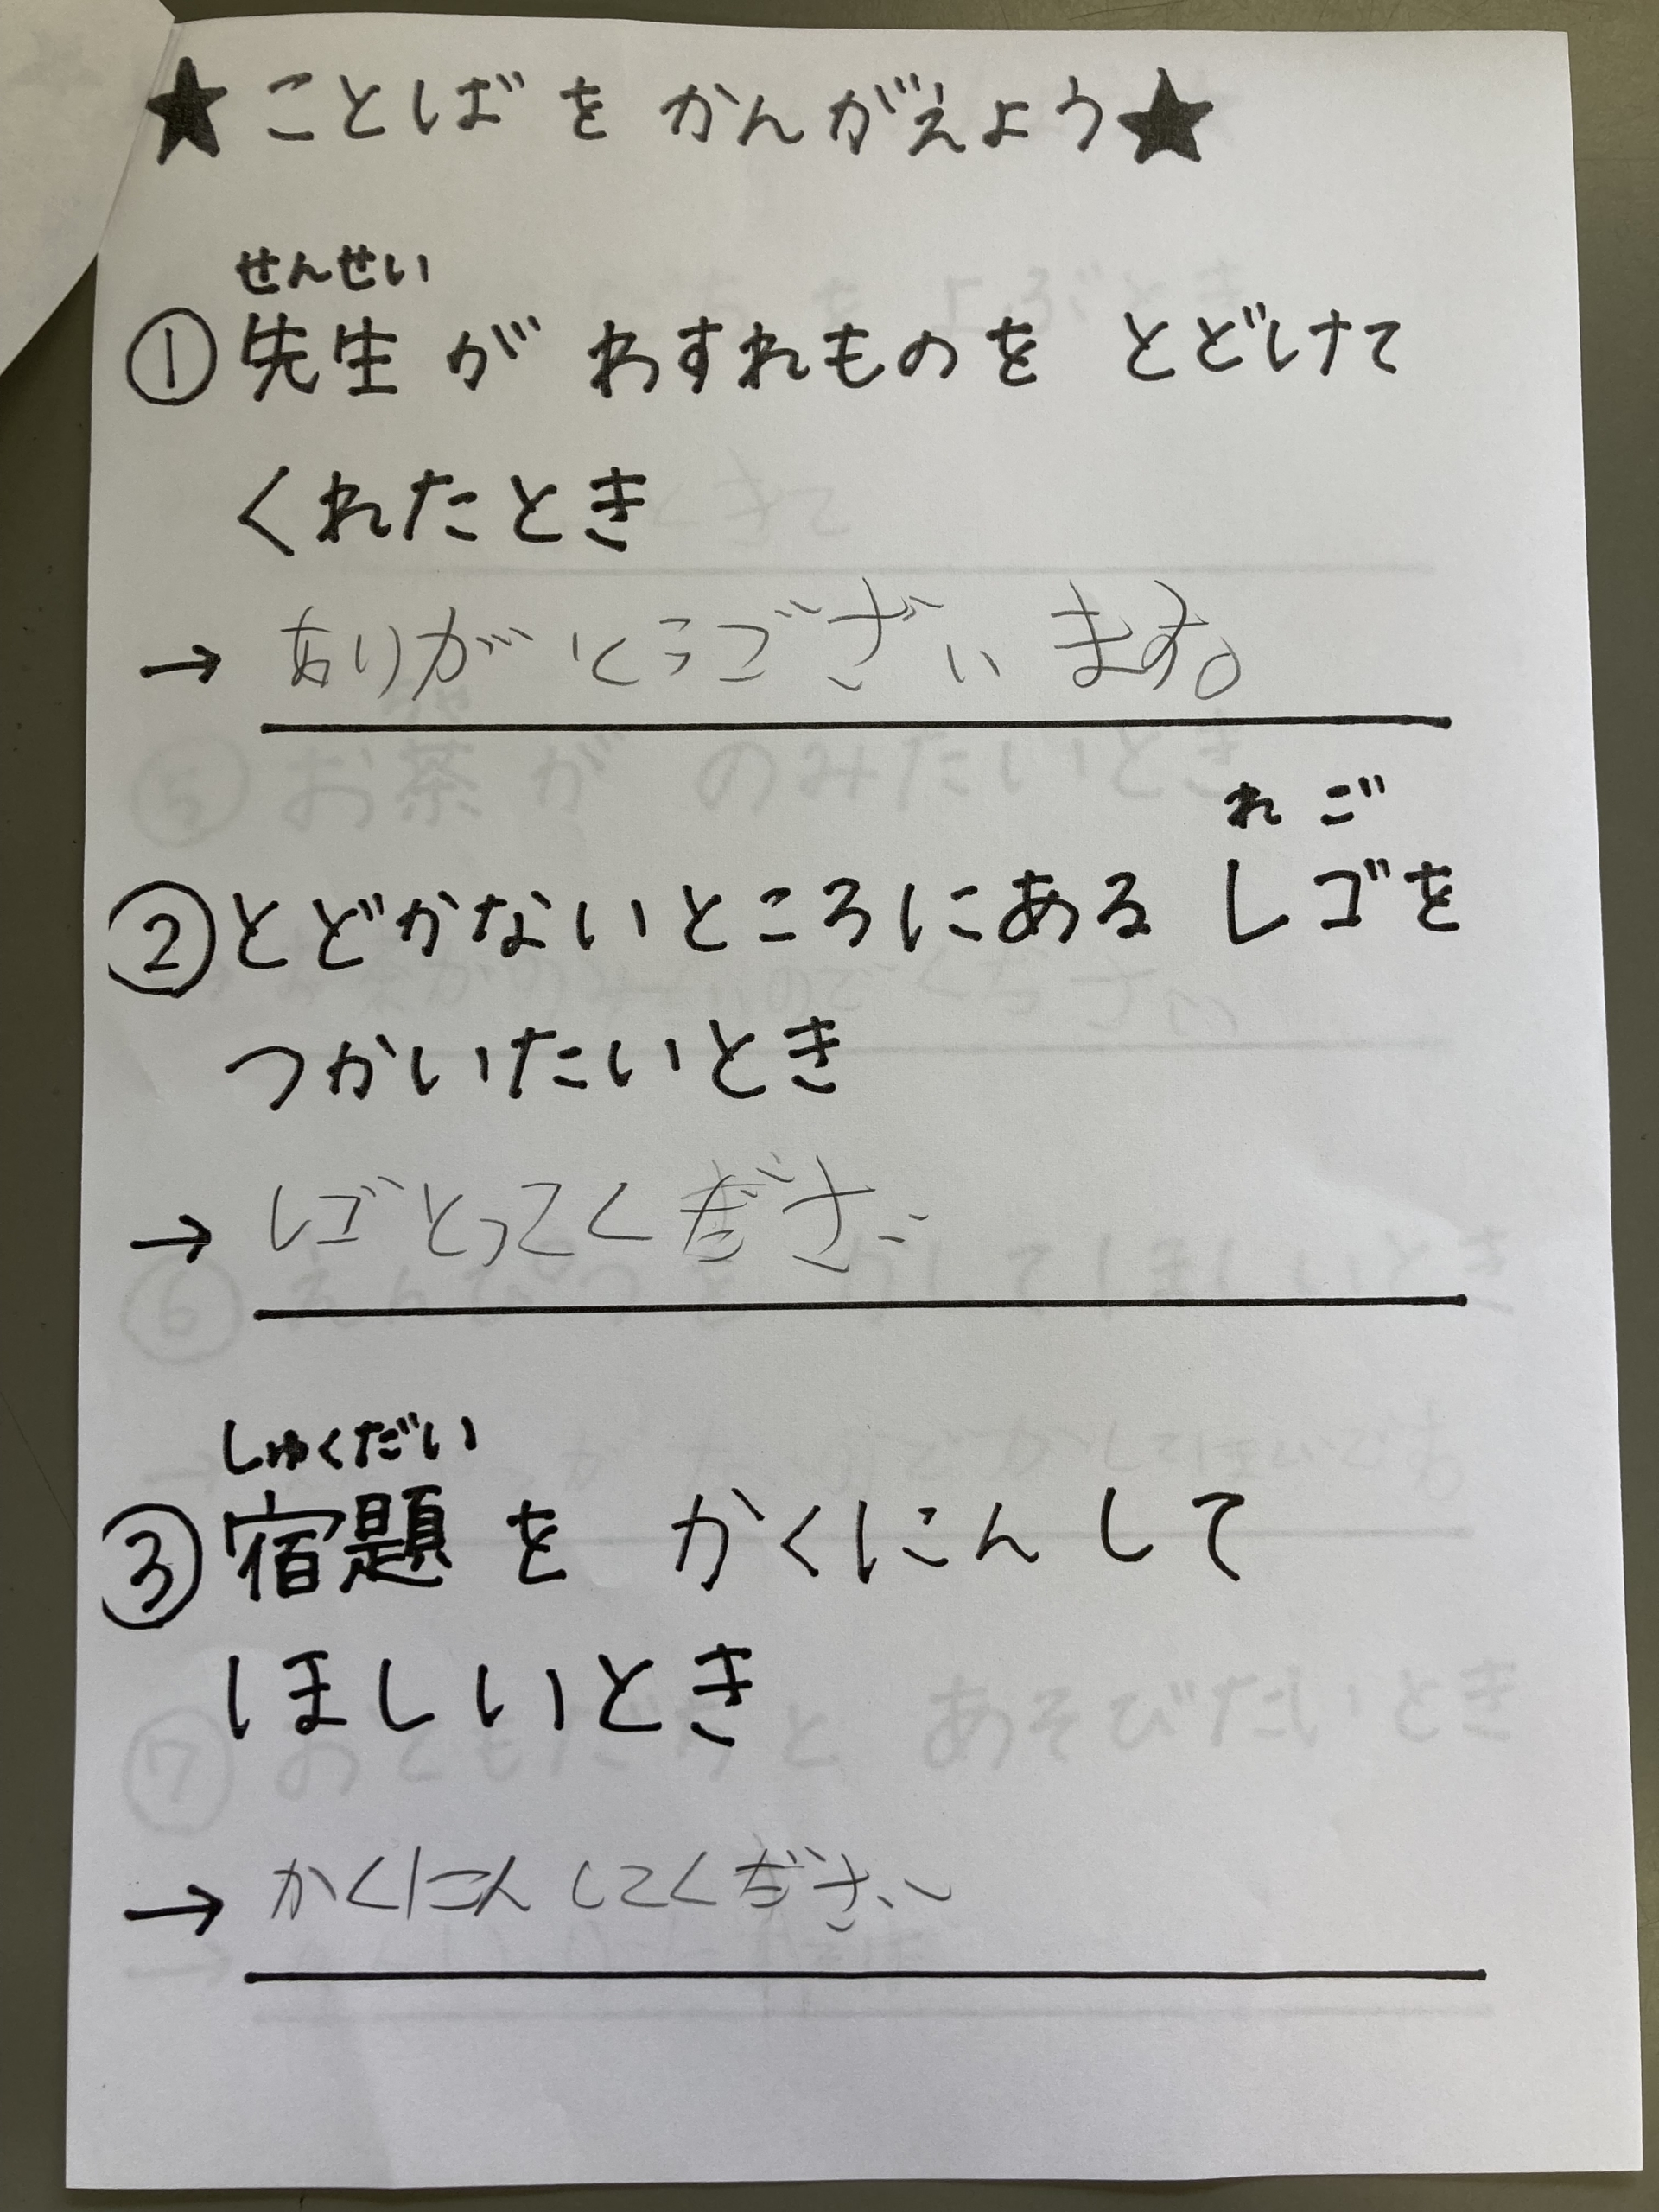 ★ことばをかんがえよう★
せんせい
①先生が わすれものを とどけて
くれたとき
→ ありがとうございます。
れご
②とどかないところにある レゴを
つかいたいとき
→ レゴとってください
しゅくだい
③宿題を かくにんして
ほしいとき
→ かくにんしてください